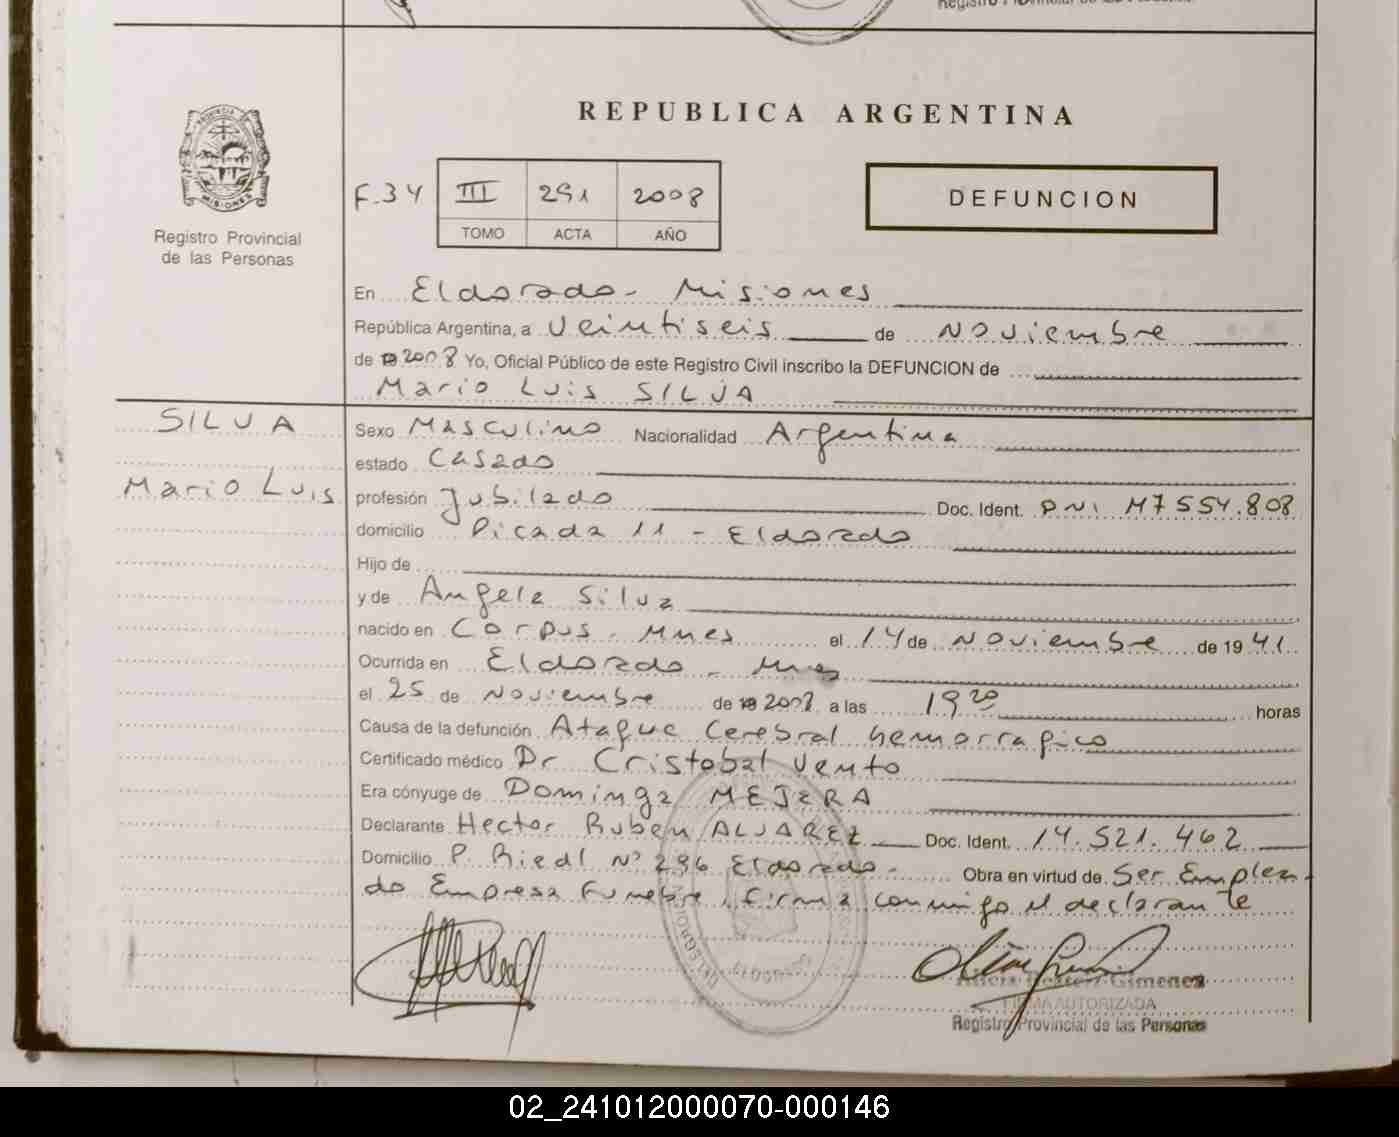 REPUBLICA ARGENTINA
PROVINCIA DE
MISIONES
Registro Provincial
de las Personas
F.34 III 291 2008
TOMO ACTA AÑO
DEFUNCION
En Eldorado - Misiones
República Argentina, a Veintiseis de Noviembre
de 2008 Yo, Oficial Público de este Registro Civil inscribo la DEFUNCION de
Mario Luis SILVA
SILVA
Mario Luis
Sexo Masculino Nacionalidad Argentina
estado Casado
profesión Jubilado Doc. Ident. DNI M7554.808
domicilio Picada 11 - Eldorado
Hijo de
y de Angela Silva
nacido en Corpus - Mnes el 14 de Noviembre de 1941
Ocurrida en Eldorado - Mnes
el 25 de Noviembre de 2008 a las 19 20 horas
Causa de la defunción Ataque Cerebral hemorragico
Certificado médico Dr Cristobal Vento
Era cónyuge de Dominga
Declarante Hector Ruben ALVAREZ Doc. Ident. 14.521.462
Domicilio P. Riedl Nº 296 Eldorado - Obra en virtud de Ser Emplea-
do Empresa Funebre, firma conmigo el declarante
ELDORADO
Alicia Beatriz Gimenez
FIRMA AUTORIZADA
Registro Provincial de las Personas
02_241012000070-000146